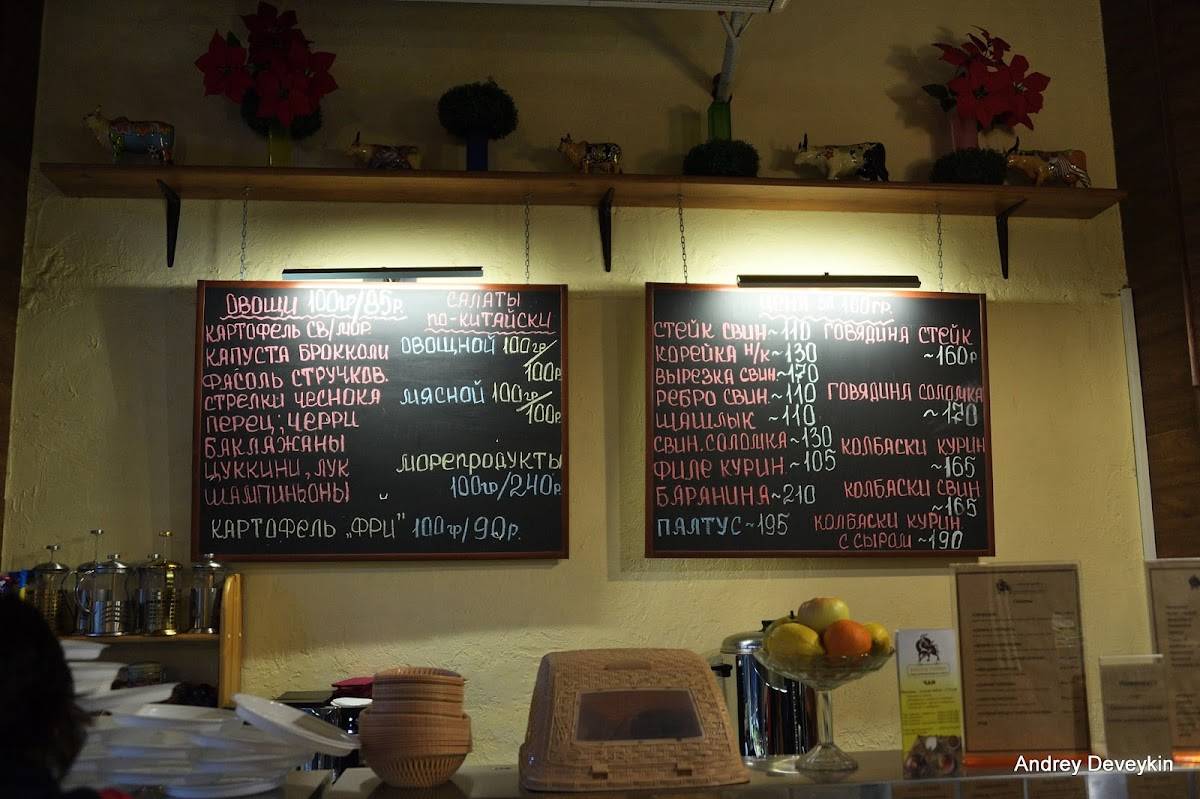 ОВОЩИ 100гр/85р.
КАРТОФЕЛЬ СВ/МОР.
КАПУСТА БРОККОЛИ
ФАСОЛЬ СТРУЧКОВ.
СТРЕЛКИ ЧЕСНОКА
ПЕРЕЦ, ЧЕРРИ
БАКЛАЖАНЫ
ЦУККИНИ, ЛУК
ШАМПИНЬОНЫ
САЛАТЫ
ПО-КИТАЙСКИ
ОВОЩНОЙ 100гр/
100р.
МЯСНОЙ 100гр/
100р.
МОРЕПРОДУКТЫ
100гр/240р.
КАРТОФЕЛЬ „ФРИ" 100гр/90р.
ЦЕНЫ ЗА 100ГР.
СТЕЙК СВИН ~110
КОРЕЙКА Н/К ~130
ВЫРЕЗКА СВИН. ~170
РЕБРО СВИН. ~110
ШАШЛЫК ~110
СВИН. СОЛОМКА ~130
ФИЛЕ КУРИН ~105
БАРАНИНА ~210
ПАЛТУС ~195
ГОВЯДИНА СТЕЙК
~160р
ГОВЯДИНА СОЛОМКА
~170
КОЛБАСКИ КУРИН
~165
КОЛБАСКИ СВИН
~165
КОЛБАСКИ КУРИН.
С СЫРОМ ~190
ЧАЙ
Andrey Deveykin